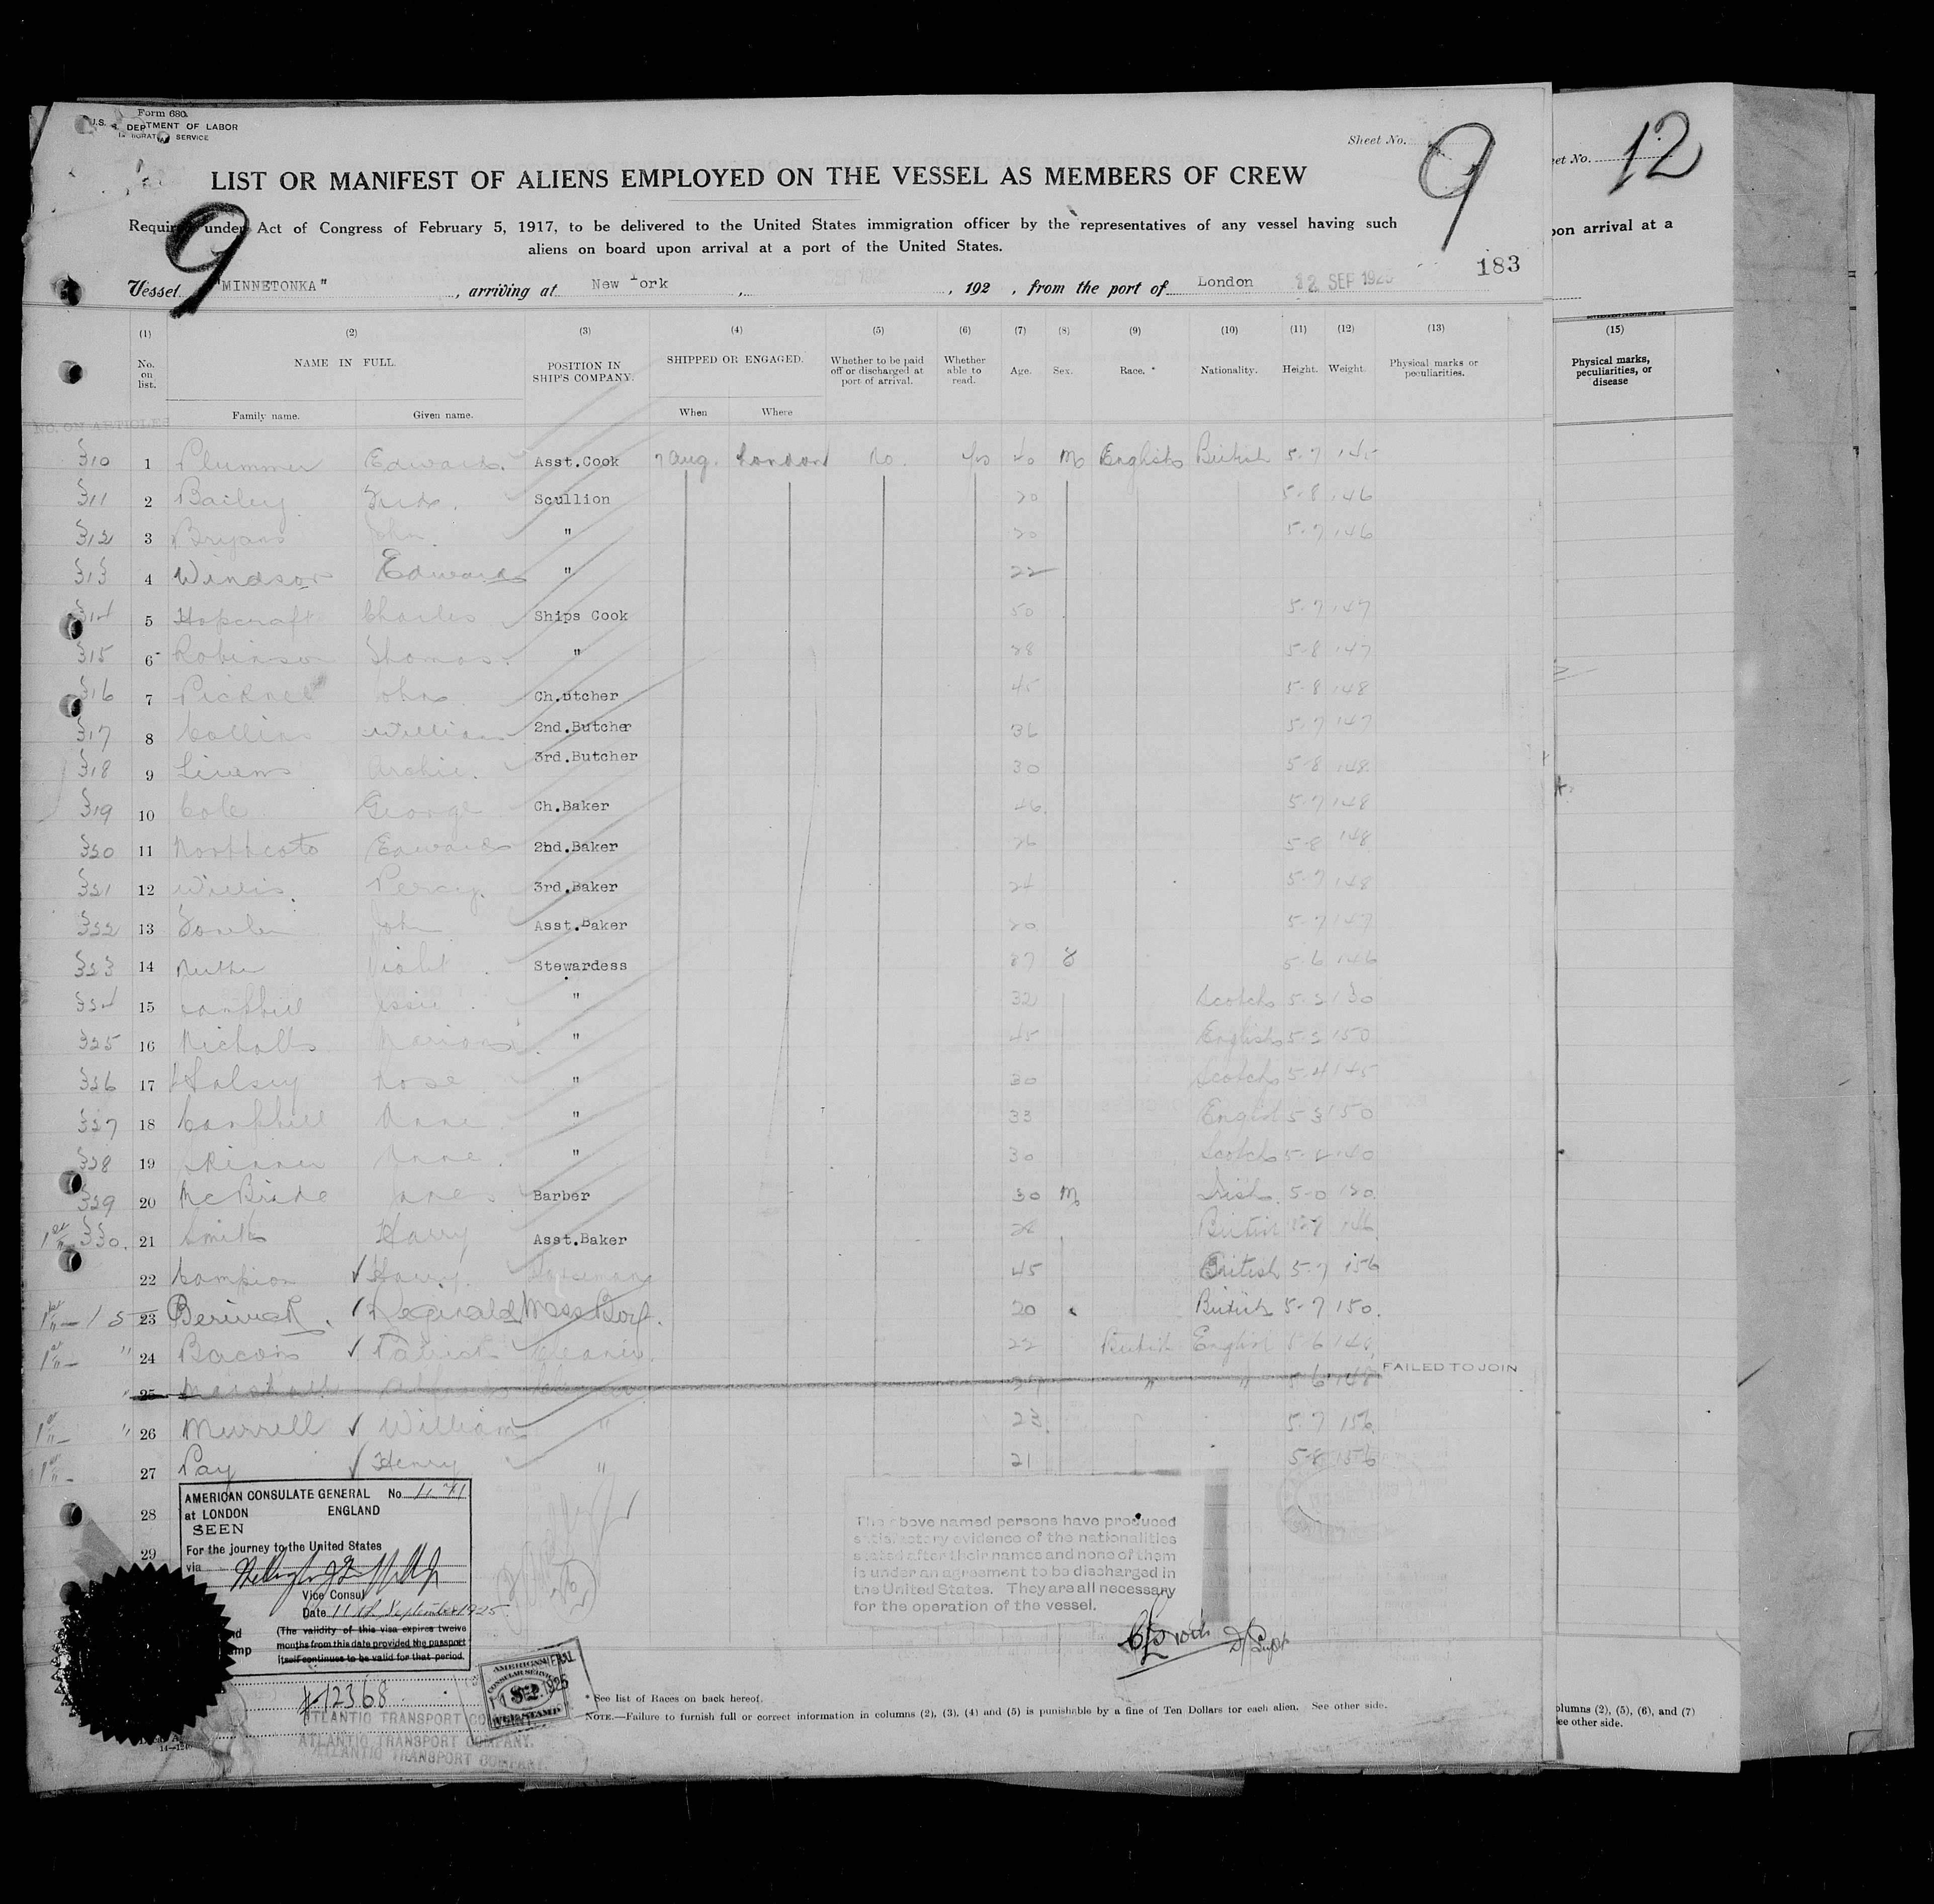 Form 680
U.S. DEPTMENT OF LABOR
SERVICE
Sheet No. 9
9
LIST OR MANIFEST OF ALIENS EMPLOYED ON THE VESSEL AS MEMBERS OF CREW
Required under Act of Congress of February 5, 1917, to be delivered to the United States immigration officer by the representatives of any vessel having such
aliens on board upon arrival at a port of the United States.
183
Vessel "MINNETONKA", arriving at New York, 192 , from the port of London 12 SEP 1925
(1) (2) (3) (4) (5) (6) (7) (8) (9) (10) (11) (12) (13)
No. on list. NAME IN FULL. POSITION IN SHIP'S COMPANY. SHIPPED OR ENGAGED. Whether to be paid off or discharged at port of arrival. Whether able to read. Age. Sex. Race. * Nationality. Height. Weight. Physical marks or peculiarities.
Family name. Given name. When Where
NO. ON ARTICLES
310 1 Plummer Edward Asst.Cook 7 Aug. London No. Yes 40 M English British 5-7 145
311 2 Bailey Fredk. Scullion 20 5-8 146
312 3 Bryans John " 20 5-7 146
313 4 Windsor Edward " 22
314 5 Hopcraft Charles Ships Cook 50 5-7 147
315 6 Robinson Thomas " 28 5-8 147
316 7 Picknell John Ch.utcher 45 5-8 148
317 8 Collins William 2nd.Butcher 36 5-7 147
318 9 Livens Archie. 3rd.Butcher 30 5-8 148
319 10 Cole George Ch.Baker 46. 5-7 148
320 11 Northcote Edward 2hd.Baker 26 5-8 148
321 12 Willis. Percy. 3rd.Baker 24 5-7 148
322 13 John Asst.Baker 20 5-7 147
323 14 Violet Stewardess 37 5-6 146
324 15 Campbell Jessie " 32 Scotch 5-2 130
325 16 Nicholls Marion " 45 English 5-2 150
326 17 Halsey Rose " 30 Scotch 5-4 145
327 18 Campbell Anne " 33 English 5-3 150
328 19 Skinner Anne " 30 Scotch 5-2 140
329 20 McBride Jane Barber 30 M Irish. 5-0 130
330. 21 Smith Harry Asst.Baker British 146
22 Campion Harry. 45 British 5-7 156
15 23 Berwick Reginald Mess Boy. 20 British 5-7 150.
" 24 Bacon Patrick Cleaner. 22 British English 5-6 148
" 25 Marshall " " 5-6 148 FAILED TO JOIN
" 26 Murrell William " 23. 5-7 156.
27 Pay Henry " 21 5-8 156
28
29
AMERICAN CONSULATE GENERAL No 1171
at LONDON ENGLAND
SEEN
For the journey to the United States
via
Vice Consul
Date 11th September 1925
(The validity of this visa expires twelve
months from this date provided the passport
itself continues to be valid for that period.
The above named persons have produced
satisfactory evidence of the nationalities
stated after their names and none of them
is under an agreement to be discharged in
the United States. They are all necessary
for the operation of the vessel.
#12368
AMERICAN
CONSULAR SERVICE
11 SEP. 1925
FEE STAMP
ATLANTIC TRANSPORT COMPANY.
ATLANTIC TRANSPORT COMPANY.
ATLANTIC TRANSPORT COMPANY.
* See list of Races on back hereof.
NOTE.—Failure to furnish full or correct information in columns (2), (3), (4) and (5) is punishable by a fine of Ten Dollars for each alien. See other side.
et No. 12
pon arrival at a
GOVERNMENT PRINTING OFFICE
(15)
Physical marks, peculiarities, or disease
olumns (2), (5), (6), and (7)
ee other side.